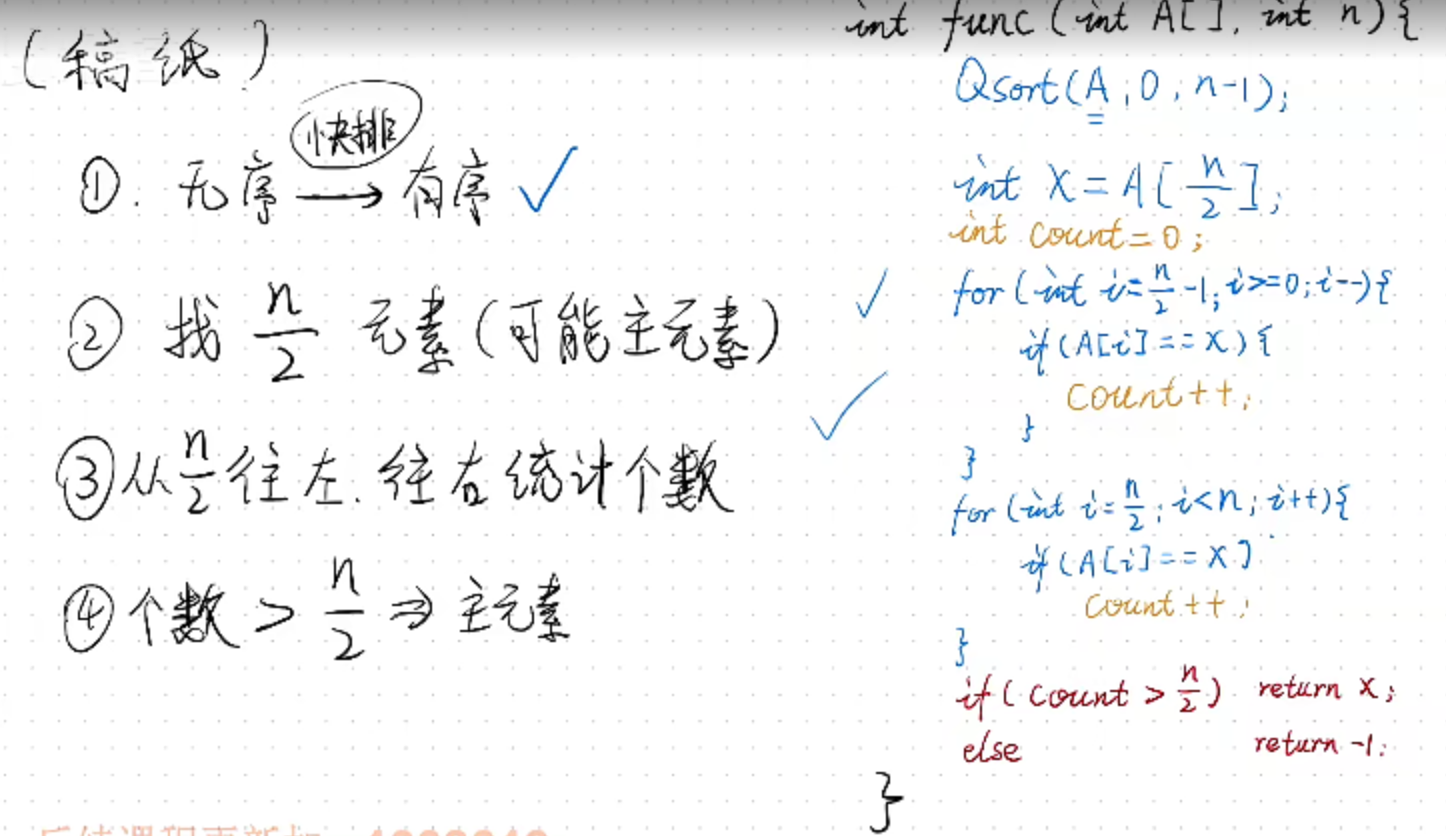 (稿纸)
快排
①. 无序 → 有序 ✓
② 找 n/2 元素(可能主元素)
③从 n/2 往左.往右统计个数
④个数 > n/2 ⇒ 主元素
int func (int A[], int n){
Qsort(A, 0, n-1);
int X = A[n/2];
int count = 0;
for (int i=n/2-1; i>=0; i--){
if (A[i] == X) {
count++;
}
}
for (int i=n/2; i<n; i++){
if (A[i] == X)
count++;
}
if (count > n/2) return X;
else return -1;
}